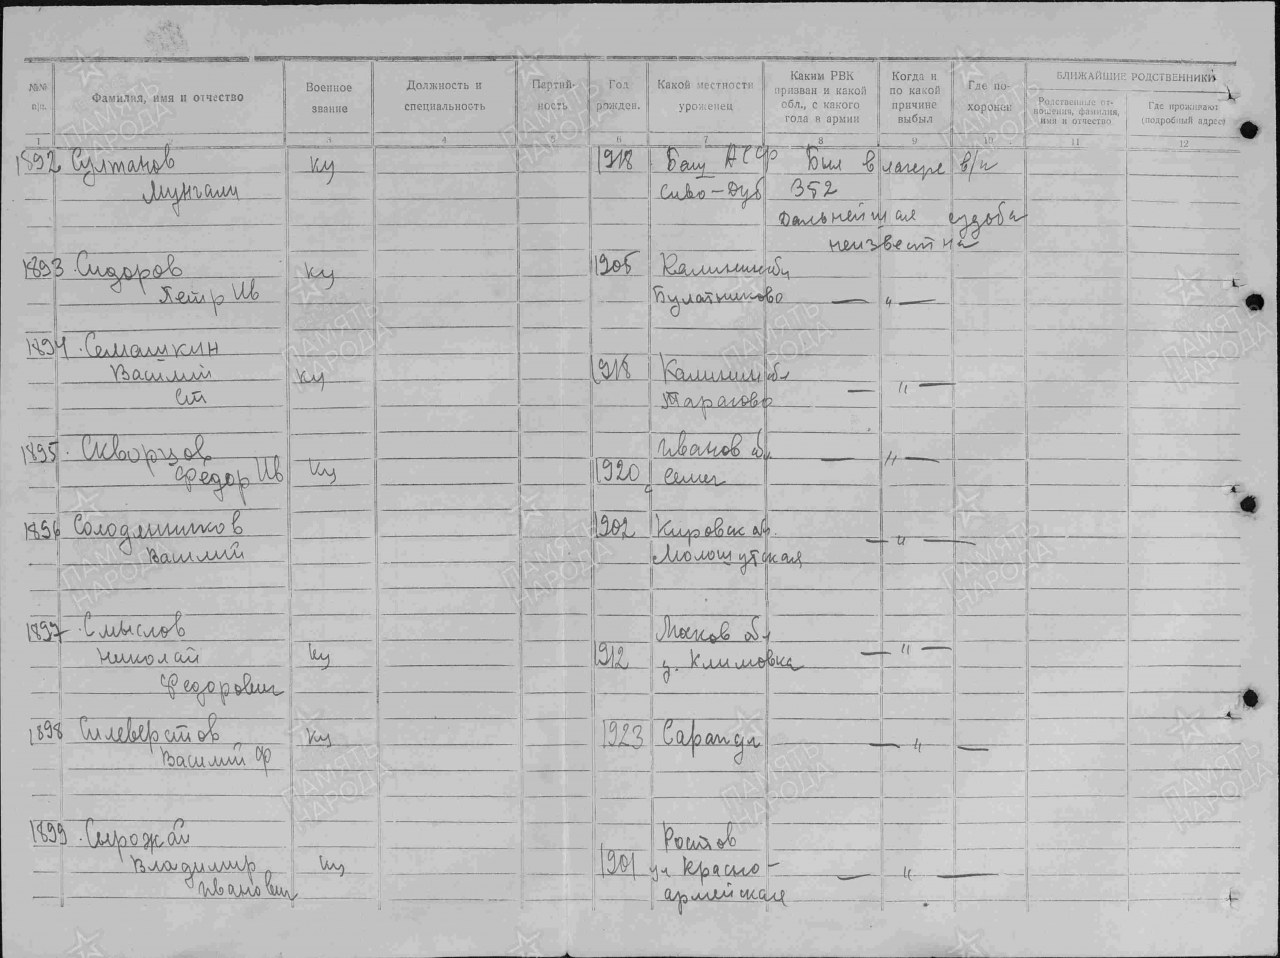 №№ п/п.
Фамилия, имя и отчество
Военное звание
Должность и специальность
Партий-ность
Год рожден.
Какой местности уроженец
Каким РВК призван и какой обл., с какого года в армии
Когда и по какой причине выбыл
Где по-хоронен
БЛИЖАЙШИЕ РОДСТВЕННИКИ
Родственные от-ношения, фамилия, имя и отчество
Где проживают (подробный адрес)
1 3 4 5 6 7 8 9 10 11 12
1892 Султанов ку 1918 Баш АССР Был в лагере в/п
Мунгали Сиво-Дуб 352
Дальнейшая судьба
неизвестна
1893 Сидоров ку 1905
Петр Ив Булатниково — " —
1894 Семашкин
Василий ку 1918 Калинин обл — " —
Ст Тарасово
1895 Скворцов Иванов обл — " —
Фёдор Ив ку 1920
1896 Солодянников 1902 Кировск об. — " —
Василий
1897 Смыслов Моков обл
Николай ку 1912 д. Климовка — " —
Федорович
1898 Силеверстов ку 1923 Сарапул — " —
Василий Ф
1899 Сырожай Ростов
Владимир ку 1901 ул Красно- — " —
Иванович армейская
ПАМЯТЬ НАРОДА